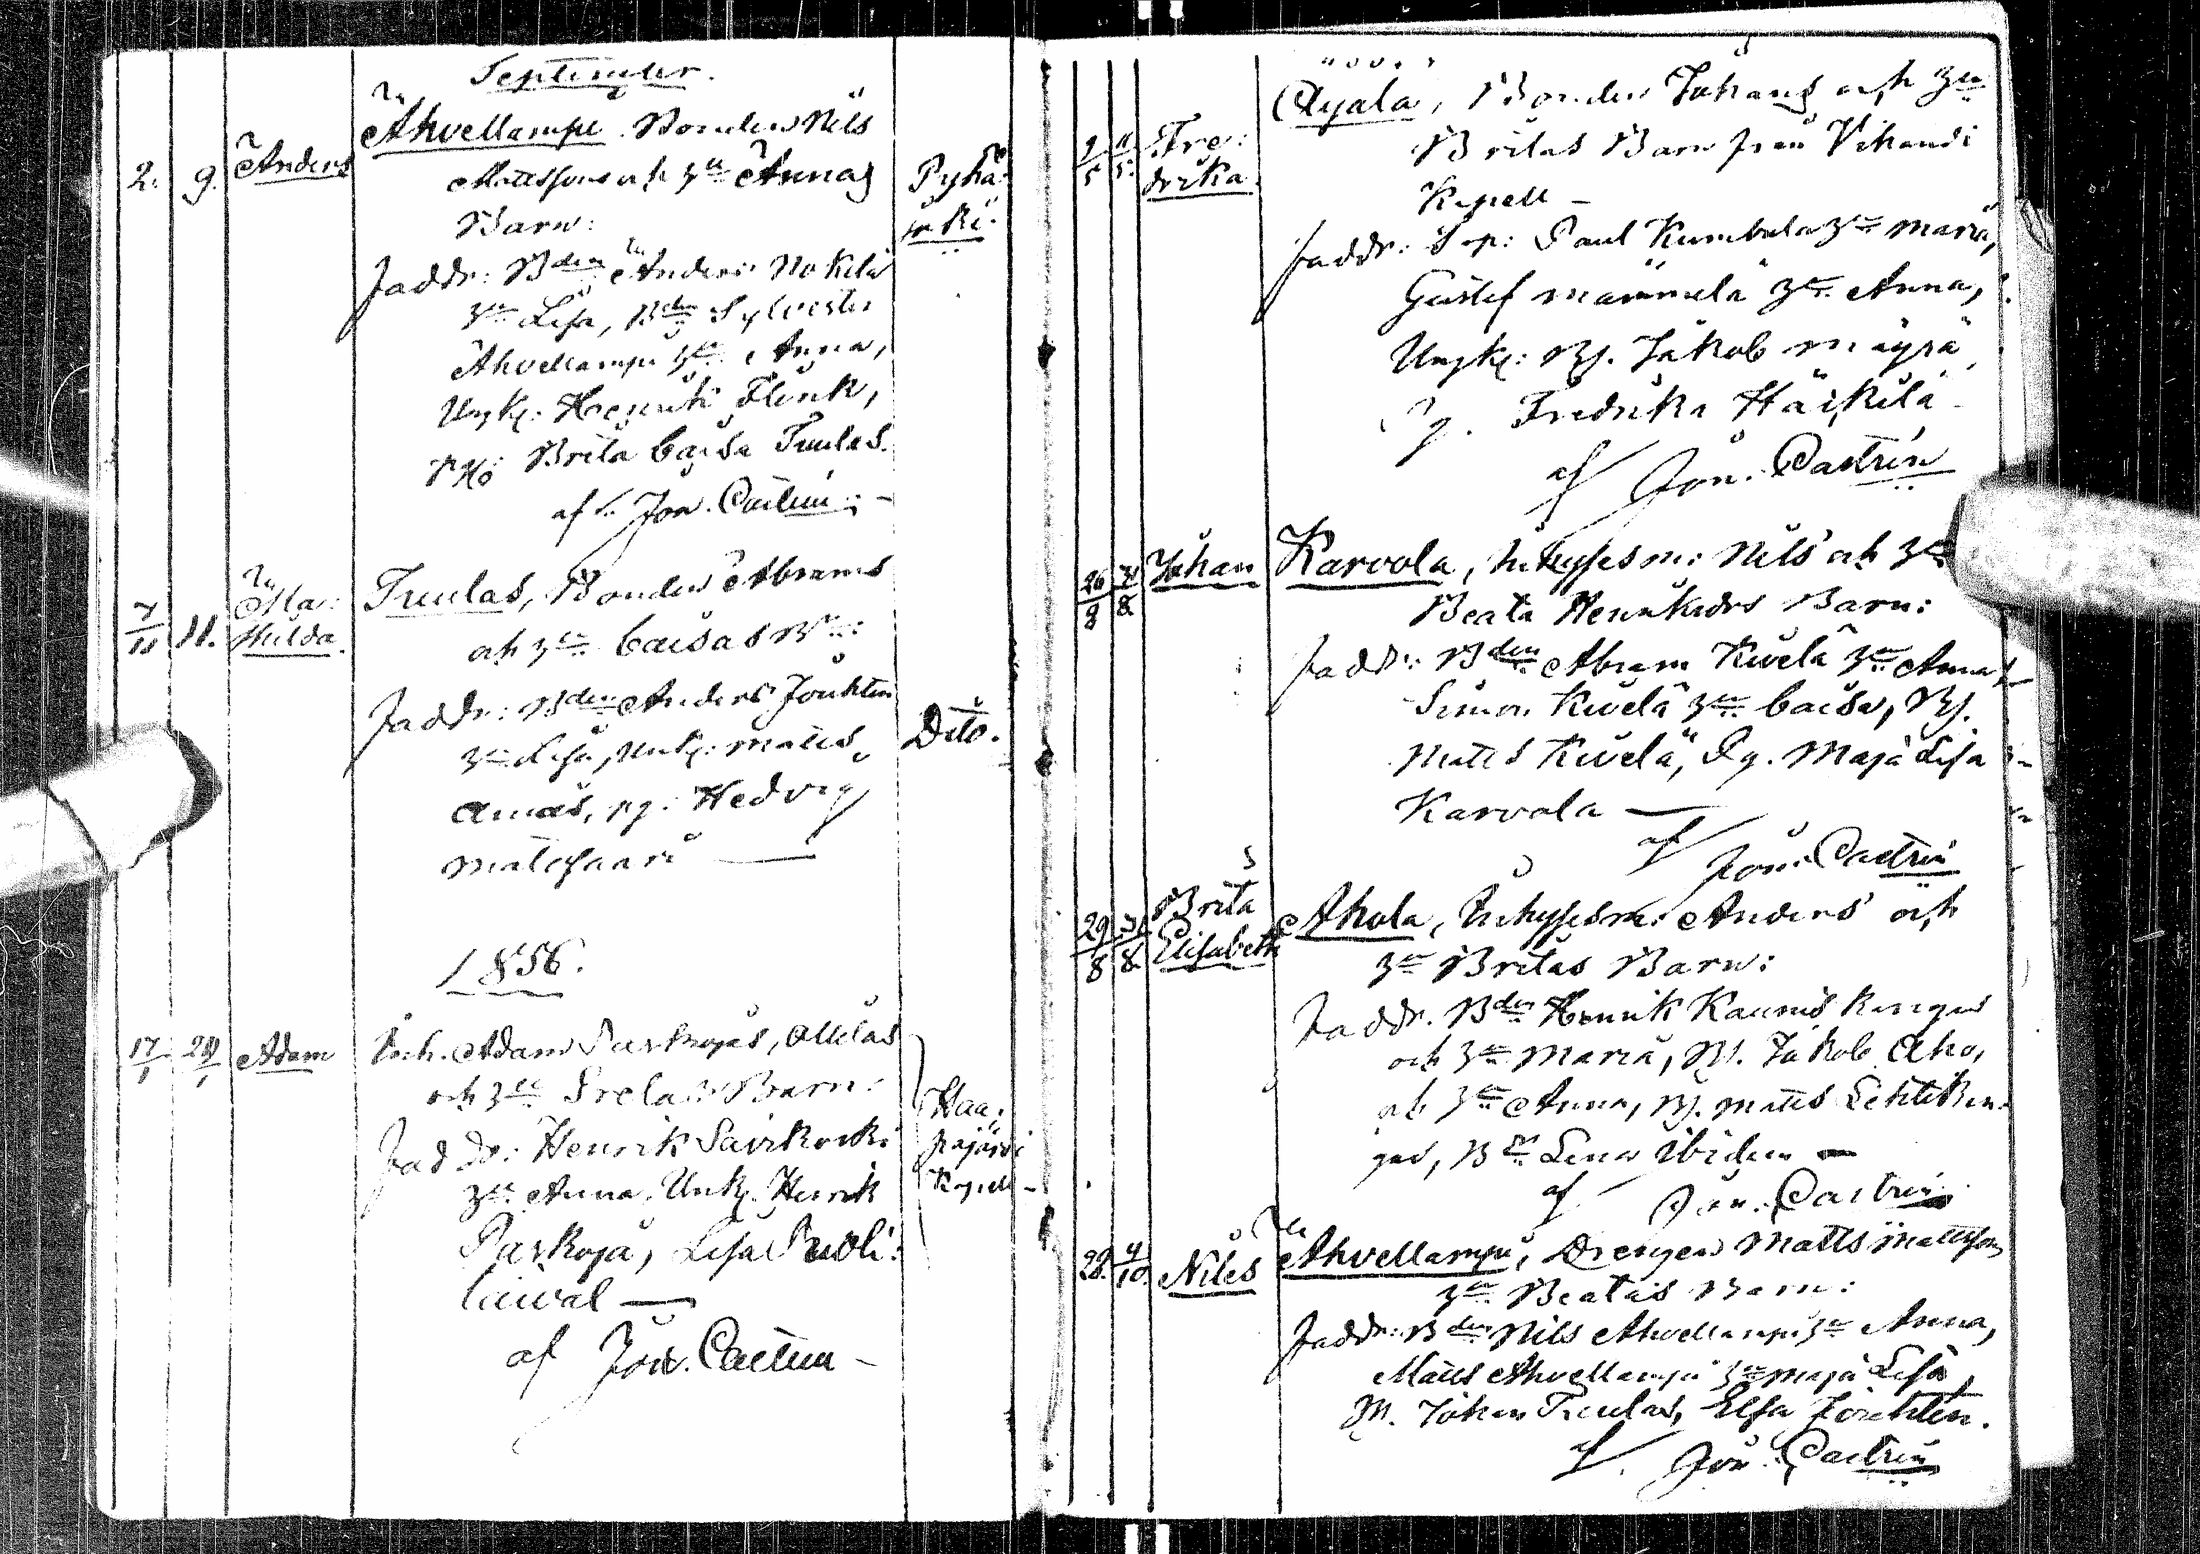 September.
Ahvellampi. Bonden Nils
2. 9. Anders
Mattssons och h:u Annas
Barn:
Pyhä-
jerki.
Faddr: Bden Anders Nokela
h:u Lisa, Bden Sylvester
Ahvellampi h:u Anna,
Ungk: Henrik Flink,
Brita Caisa Tuulas.
af Jon. Castrén
7/10 11. Ida
Hulda.
Tuulas, Bonden Abrams
och h:u Caisas Bn:
Faddr: Bden Anders Jouhten
h:u Lisa, Unk: Matts
Dito.
pg: Hedvig
Matosaari
1856.
17/1 20/1 Adam
Inh. Adam Parkojas,
och h:u Gretas Barn:
Faddr: Henrik
h:u Anna, Unk. Henrik
Haa-
pajärvi
Kapell
Parkoja, Lisa
af Jon. Castrén
9/5 11/5 Fre-
drika.
Ojala, Bonden Johans och h:u
Britas Barn från Vihandi
Kapell
Faddr: Paul Kumbula h:u Maria,
Gustef Mämmelä h:u Anna,
Ungk: Bs. Jakob Mäyrä,
Pg. Fredrika Häikilä
af Jon. Castrén
26/8 31/8 Johan
Karvola, Inhysesm: Nils och h:u
Beata Henriksdrs Barn:
Faddr: Bden Abram Kivelä h:u Anna
Simon Kivelä h:u Caisa, Bs.
Matts Kivelä, Pg. Maja Lisa
Karvola
af Jon. Castrén
29/8 31/8 Brita
Elisabeth
Ahola, Inhysesm: Anders och
h:u Britas Barn:
Faddr. Bdn Henrik Kauniskangas
och h:u Maria, Bs. Jakob Aho,
och h:u Anna, Bs. Matts Lehtikan-
gas, Bdr Lena ibidem
af Jon. Castrén
28. 4/10. Nils
Ahvellampi, Drengen Matts Mattsson
h:u Beatas Barn:
Faddr: Bden Nils Ahvellampi h:u Anna,
Matts Ahvellampi h:u Maja Lisa,
Johan Tuulas, Elsa Jouhten.
af Jon. Castrén